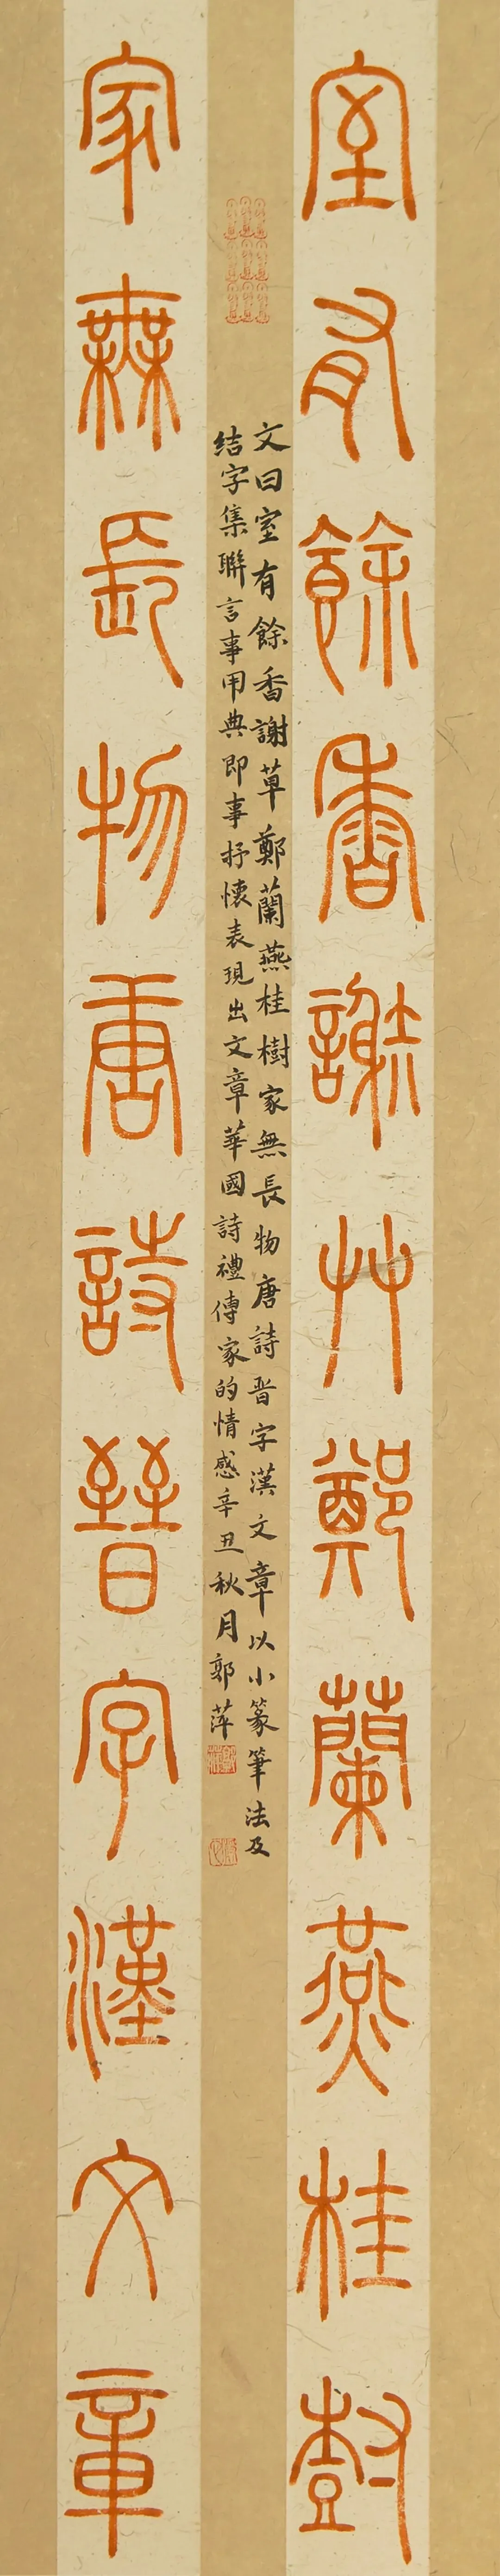 室有餘香謝艸鄭蘭燕桂樹
文曰室有餘香謝草鄭蘭燕桂樹家無長物唐詩晋字漢文章以小篆筆法及
結字集聯言事用典即事抒懷表現出文章華國詩禮傳家的情感辛丑秋月郭萍
家無長物唐詩晉字漢文章